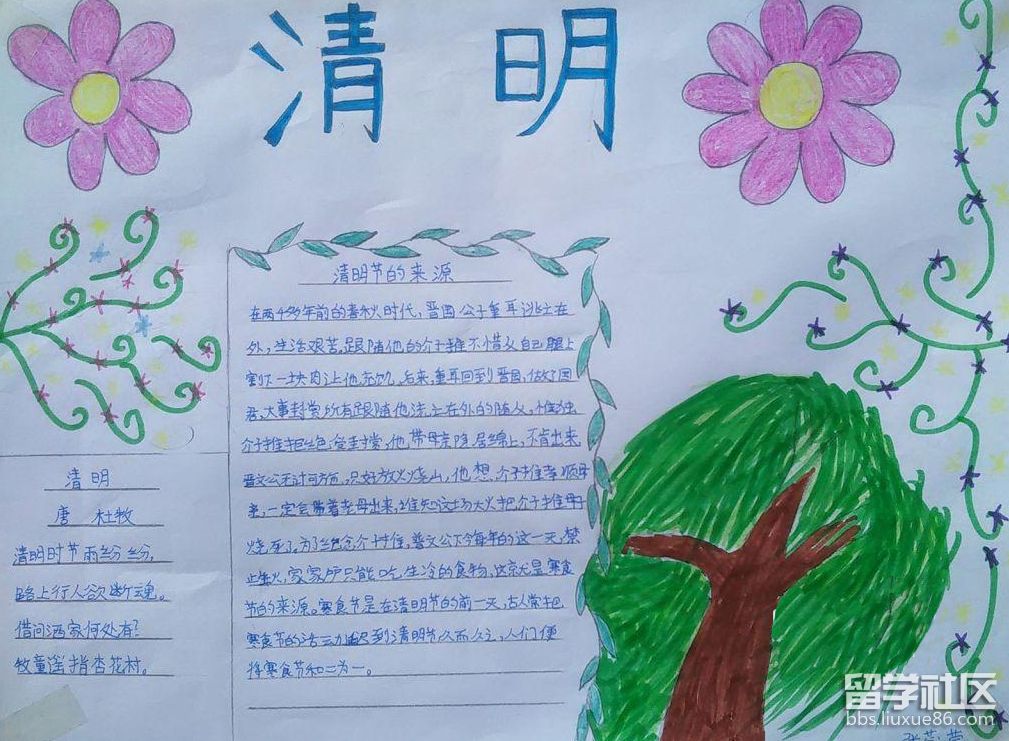 清明
清明节的来源
在两千多年前的春秋时代,晋国公子重耳逃亡在
外,生活艰苦,跟随他的介子推不惜从自己腿上
割下一块肉让他充饥。后来,重耳回到晋国,做了国
君,大事封赏所有跟随他流亡在外的随从,惟独
介子推拒绝受封赏,他带母亲隐居绵上,不肯出来,
晋文公无计可施,只好放火烧山,他想,介子推孝顺母
亲,一定会带着老母出来,谁知这场大火把介子推母子
烧死了,为了纪念介子推,晋文公下令每年的这一天,禁
止生火,家家户户只能吃生冷的食物,这就是寒食
节的来源。寒食节是在清明节的前一天,古人常把
寒食节的活动延到清明节久而久之,人们便
将寒食节和二为一。
清明
唐 杜牧
清明时节雨纷纷,
路上行人欲断魂。
借问酒家何处有?
牧童遥指杏花村。
留学社区
bbs.liuxue86.com